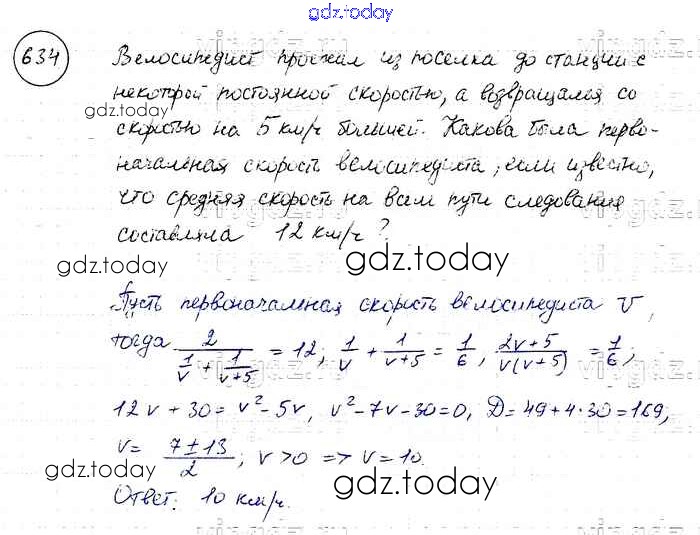 gdz.today
634
Велосипедист проехал из поселка до станции с
некоторой постоянной скоростью, а возвращался со
скоростью на 5 км/ч большей. Какова была перво-
начальная скорость велосипедиста, если известно,
что средняя скорость на всем пути следования
составляла 12 км/ч?
gdz.today
gdz.today
gdz.today
Пусть первоначальная скорость велосипедиста v,
тогда 2/(1/v + 1/(v+5)) = 12; 1/v + 1/(v+5) = 1/6, (2v+5)/(v(v+5)) = 1/6;
12v + 30 = v² - 5v, v² - 7v - 30 = 0, D = 49 + 4·30 = 169;
v = (7 ± 13)/2; v > 0 => v = 10.
gdz.today
gdz.today
Ответ: 10 км/ч.